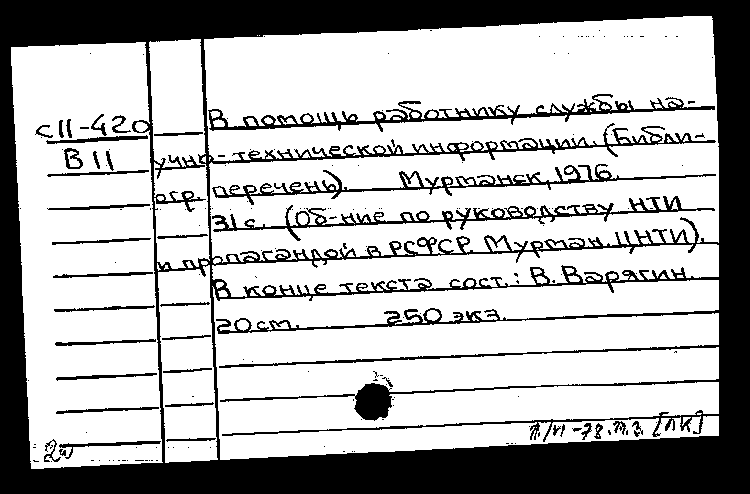 с11-420
В 11
В помощь работнику службы на-
учно-технической информации. (Библи-
огр. перечень). Мурманск, 1976.
31 с. (Об-ние по руководству НТИ
и пропагандой в РСФСР. Мурман. ЦНТИ).
В конце текста сост.: В. Варягин.
20 см. 250 экз.
[ЛК]